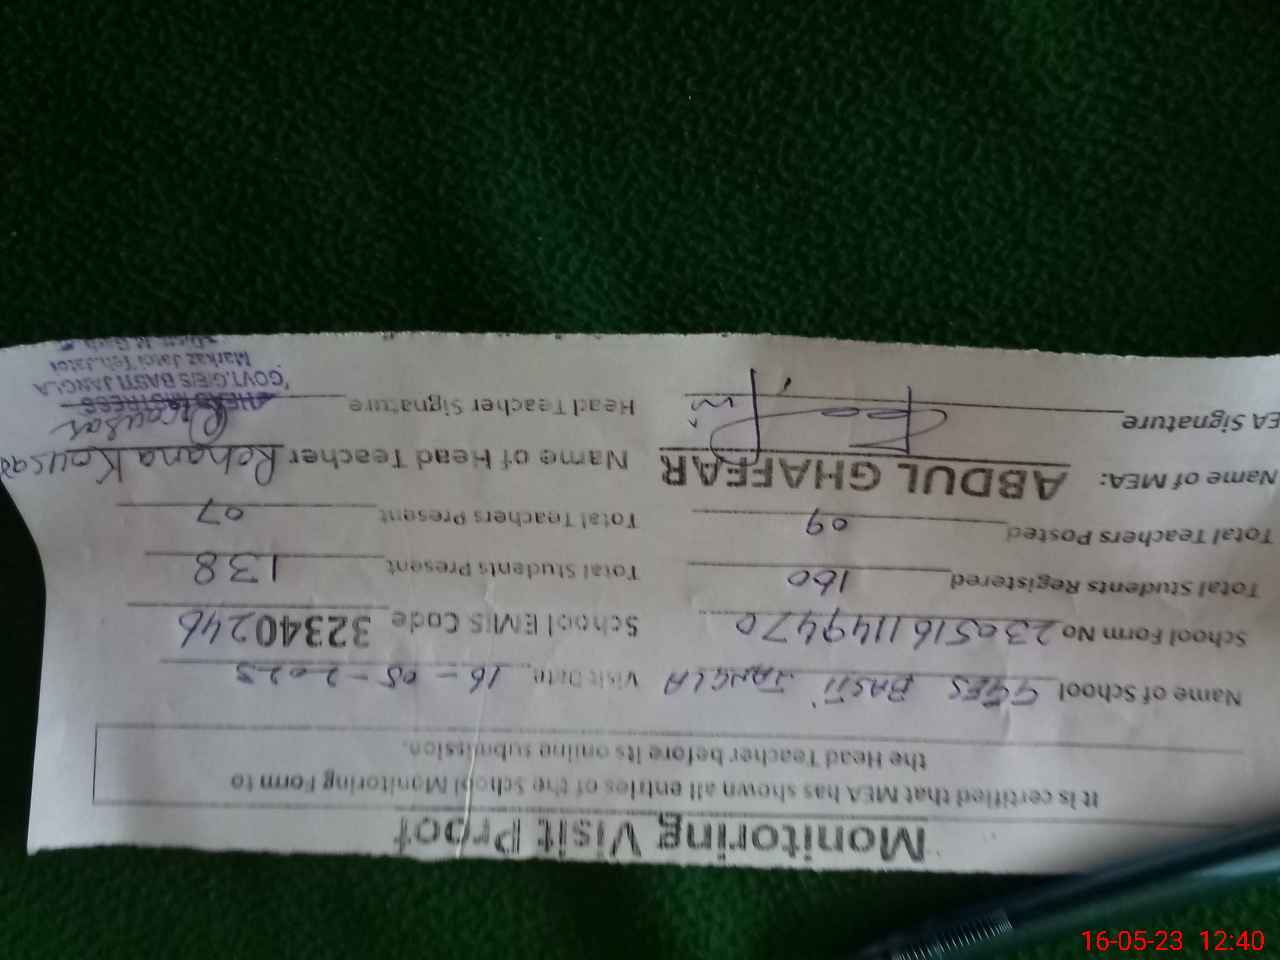 Monitoring Visit Proof
It is certified that MEA has shown all entries of the School Monitoring Form to
the Head Teacher before its online submission.
Name of School GGES BASTI JANGLA Visit Date 16-05-2023
School Form No 230516111149470 School EMIS Code 32340246
Total Students Registered 160 Total Students Present 138
Total Teachers Posted 09 Total Teachers Present 07
Name of MEA: ABDUL GHAFFAR Name of Head Teacher Rehana Kousar
EA Signature Head Teacher Signature Rkousar
HEADMISTRESS
GOVT.G/E/S BASTI JANGLA
Markaz Jatoi Teh. Jatoi
16-05-23 12:40